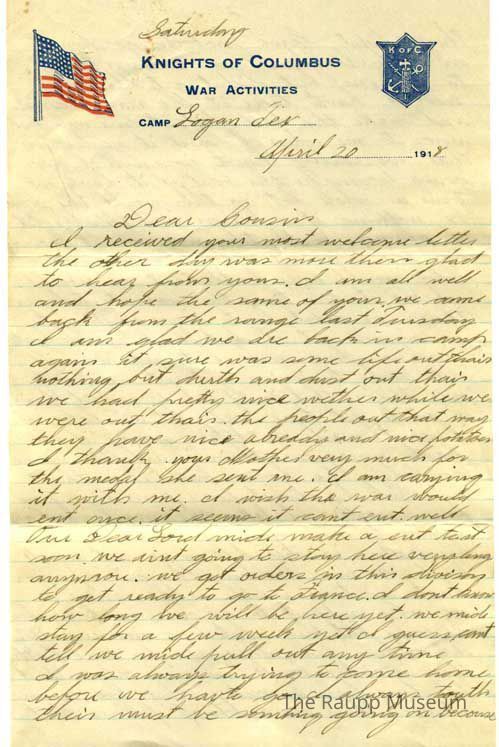 Saturday
KNIGHTS OF COLUMBUS
K OF C
WAR ACTIVITIES
CAMP Logan Tex
April 20 1918
Dear Cousin
I received your most welcome letter
the other day was more then glad
to hear from yous. I am all well
and hope the same of yous. we came
back from the range last Tuesday
I am glad we are back in camp
again it sure was some life out thair
nothing but durth and dust out thair
we had pretty nice wether while we
were out thair. the people out that way
they have nice already and nice potatoes
I thank your Mother very much for
the medal she sent me. I am carying
it with me. I wish the war would
ent once. it seems it cant ent. well
Our Dear Lord mide make a ent to it
soon. we aint going to stay here very long
anymore. we got orders in this division
to get ready to go to France. I dont know
how long we will be here yet. we mide
stay for a few week yet I guess cant
tell we mide pull out any time
I was always trying to come home
before we have to go. I always
their must be somthing going on because
The Raupp Museum